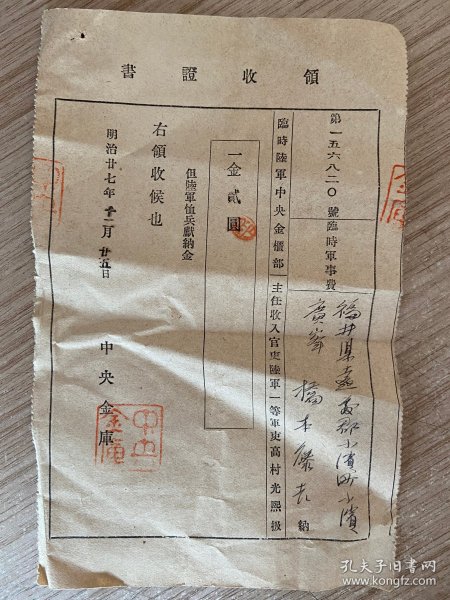 領收證書
第一五六八二〇號臨時軍事費
福井県遠敷郡小濱町小濱
廣峯 橋本藤吉 納
臨時陸軍中央金櫃部 主任收入官吏陸軍一等軍吏高村光熙扱
一金貳圓
但陸軍恤兵獻納金
右領收候也
明治廿七年十二月廿五日
中央金庫
中央金庫
孔夫子旧书网
www.kongfz.com